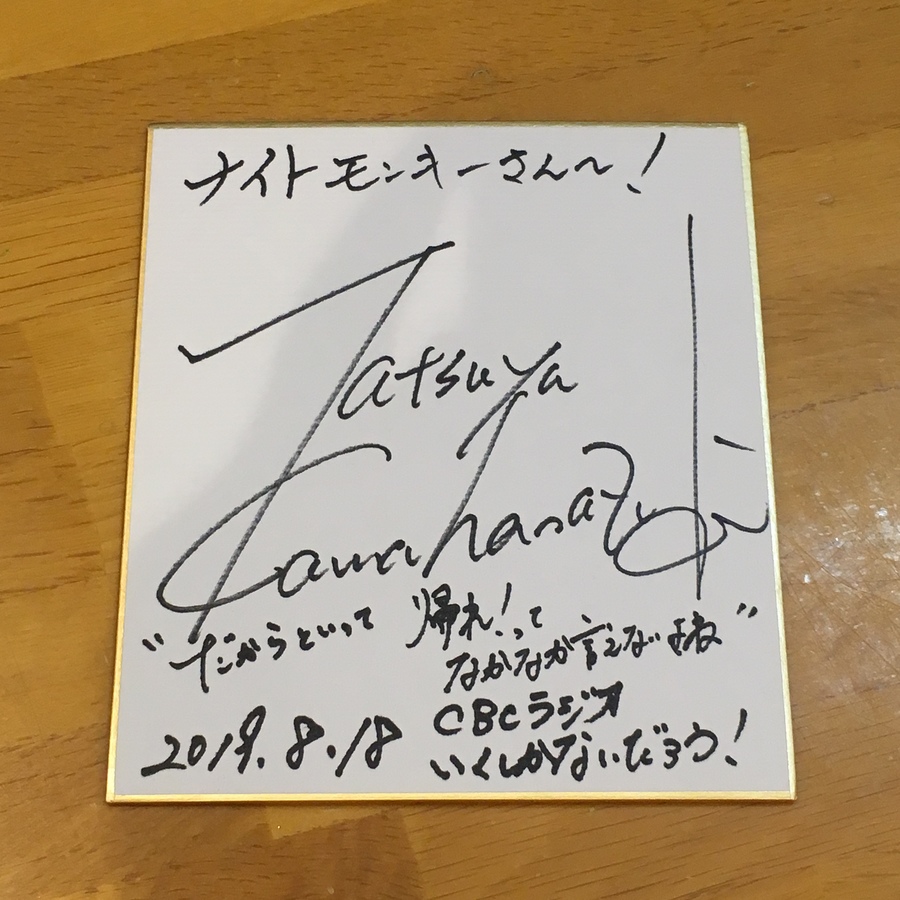 ナイトモンキーさん〜!
Tatsuya
Kawahara
"だからといって 帰れ!って
なかなか言えない
2019.8.18
CBCラジオ
いくしかないだろう!